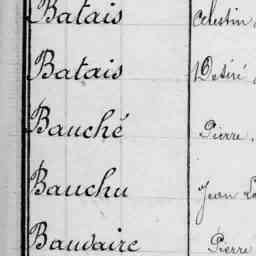 Batais Celestin
Batais Désiré
Bauché Pierre
Bauchu Jean
Baudaire Pierre